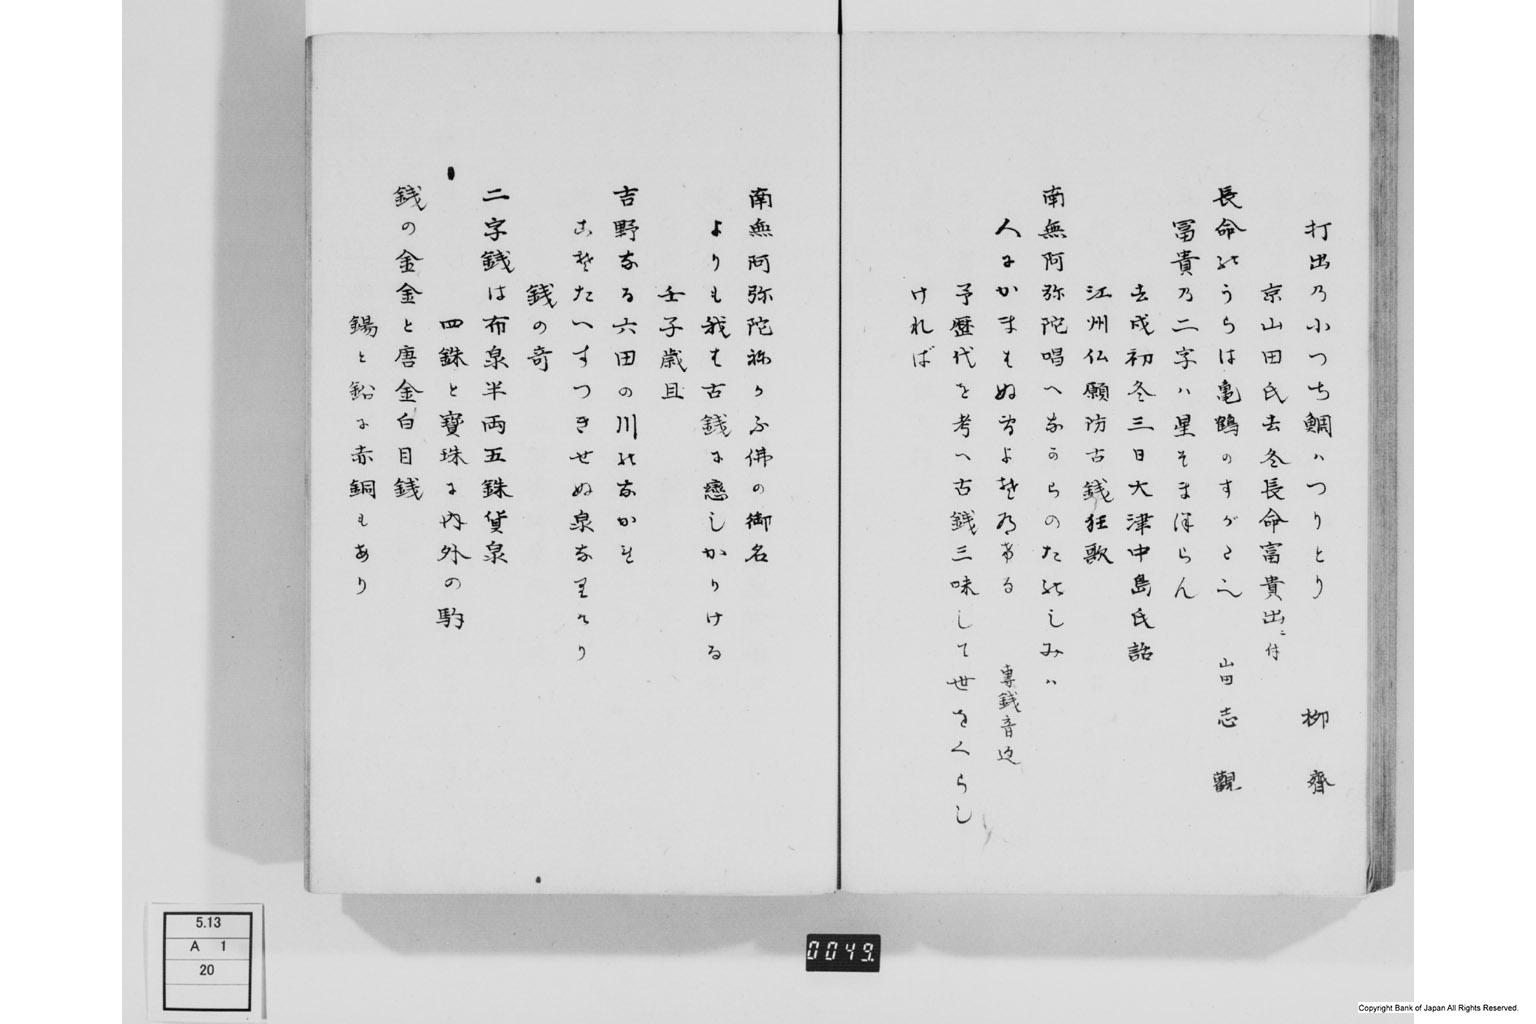 打出乃小つち鯛ハつりとり　柳齋
京山田氏去冬長命富貴出ニ付
長命のうらは亀鶴のすがたに　山田志觀
冨貴乃二字ハ星そまほらん
去戌初冬三日大津中島氏詣
江州仏願防古銭狂歌
南無阿弥陀唱へながらのたのしみハ
人にかまはぬ　専銭音
予歴代を考へ古銭三味して世をくらし
ければ
南無阿弥陀ねがふ佛の御名
よりも我は古銭に戀しかりける
壬子歳旦
吉野なる六田の川のなかに
たへすつきせぬ泉なりけり
銭の哥
二字銭は布泉半両五銖貨泉
四銖と寶珠に内外の駒
銭の金金と唐金白目銭
錫と鉛に赤銅もあり
5.13
A 1
20
0049.
Copyright Bank of Japan All Rights Reserved.